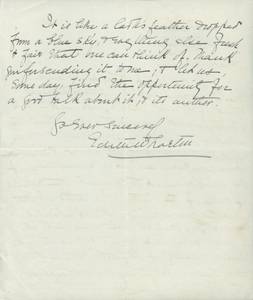 It is like a lark's feather dropped
from a blue sky, & everything else fresh
& fair that one can think of. Thank
you for sending it to me, & let us
some day, find the opportunity for
a good talk about it, & its author.
Yrs Ever Sincerely
Edith Wharton